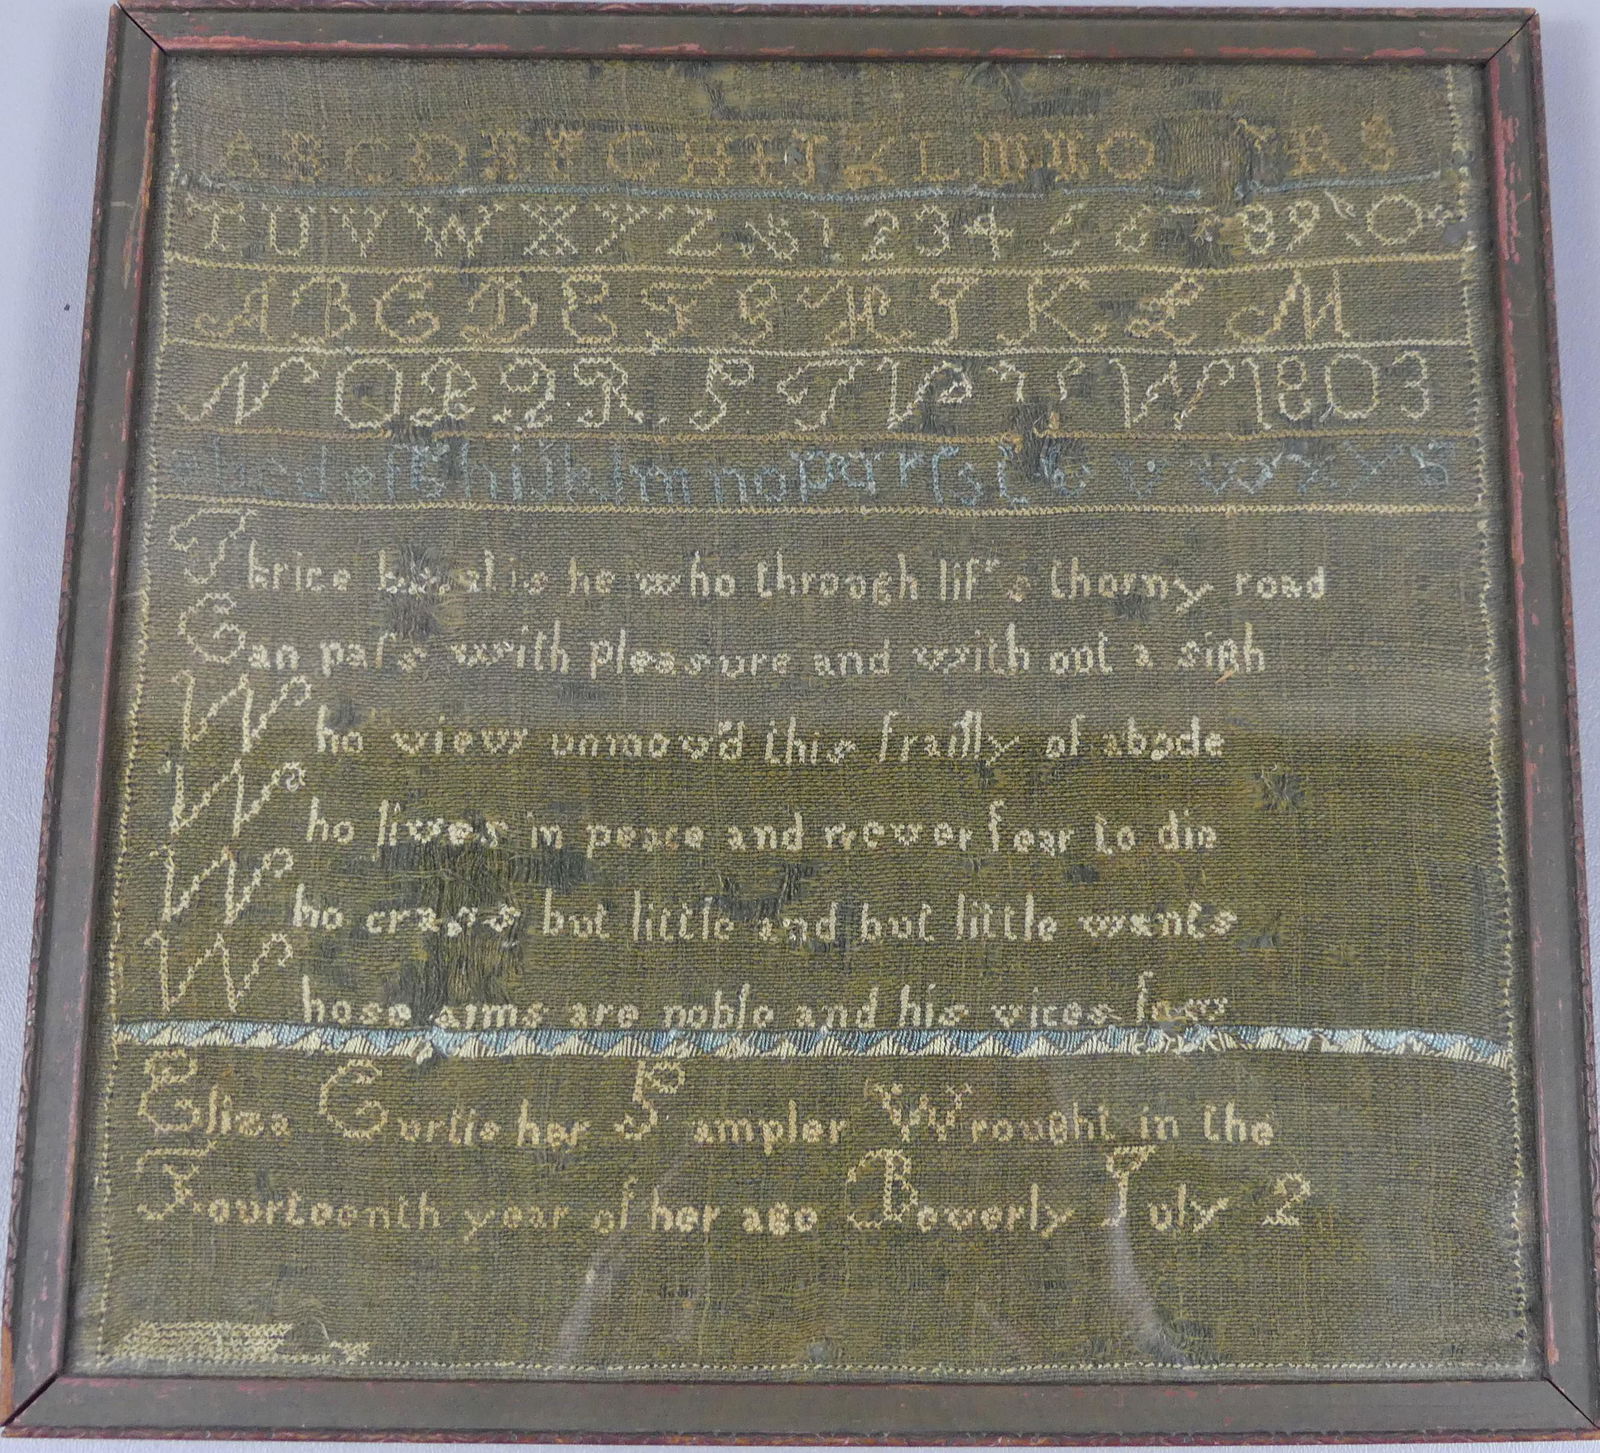 A B C D E F G H I J K L M N O R S
T U V W X Y Z & 1 2 3 4 5 6 7 8 9 0
A B C D E F G H J K L M
N O P Q R S T V U W 1803
a b c d e f g h i j k l m n o p q r ſ s t u v w x y z
Thrice is he who through life's thorny road
Can paſs with pleasure and with out a sigh
Who view unmov'd this frailty of abode
Who lives in peace and never fear to die
Who but little and but little wants
Whose aims are noble and his vices few
Eliza Curtis her Sampler Wrought in the
Fourteenth year of her age Beverly July 2